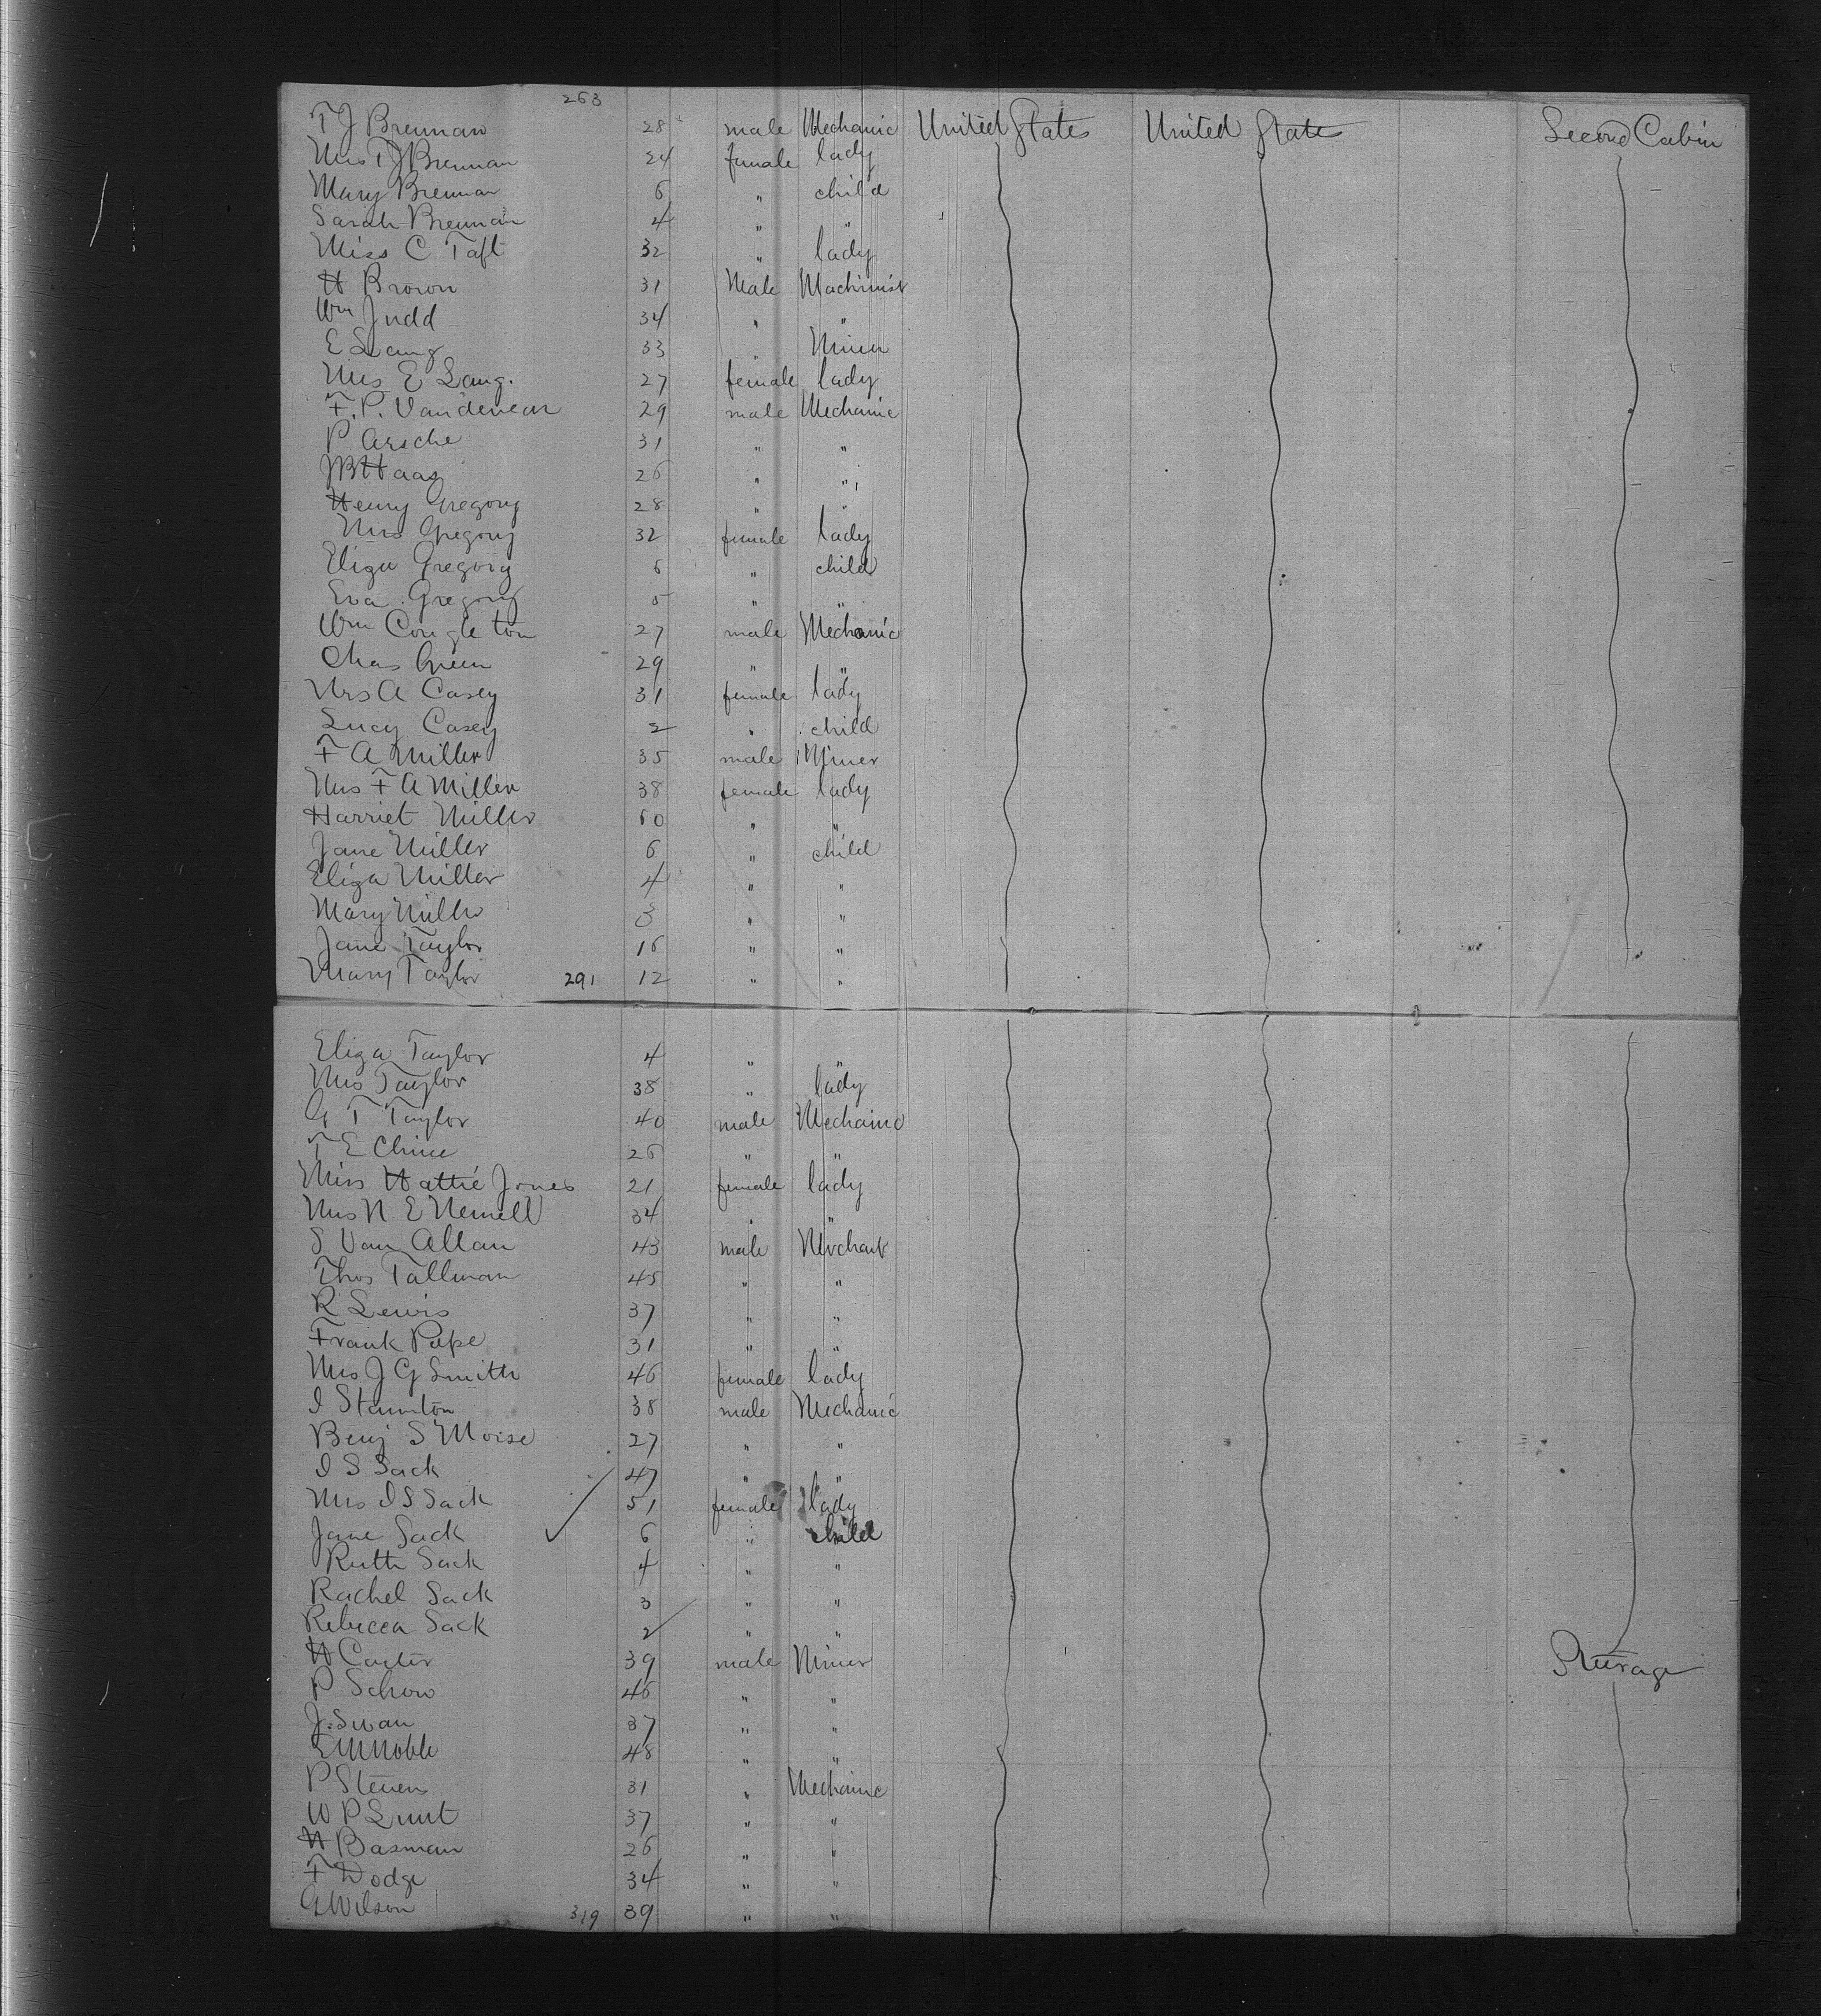 263
T J Brennan 28 male Mechanic United States United States Second Cabin
Mrs T J Brennan 24 female lady
Mary Brennan 6 " child
Sarah Brennan 4 " "
Miss C Taft 32 " lady
H Brown 31 Male Machinist
Wm Judd 34 " "
E Lang 33 " Miner
Mrs E Lang. 27 female lady
F. P. Vandevear 29 male Mechanic
P Aesche 31 " "
J B Haas 26 " "
Henry Gregory 28 " "
Mrs Gregory 32 female lady
Eliza Gregory 6 " child
Eva Gregory 5 " "
Wm Congleton 27 male Mechanic
Chas Green 29 " "
Mrs A Casey 31 female lady
Lucy Casey 2 " child
F A Miller 35 male Miner
Mrs F A Miller 38 female lady
Harriet Miller 60 " "
Jane Miller 6 " child
Eliza Miller 4 " "
Mary Miller 3 " "
Jane Taylor 16 " "
Mary Taylor 291 12 " "
Eliza Taylor 4 " "
Mrs Taylor 38 " lady
G T Taylor 40 male Mechanic
T E Chine 26 " "
Miss Hattie Jones 21 female lady
Mrs N E 34 " "
S Van Allan 43 male Merchant
Thos Tallman 45 " "
R Lewis 37 " "
Frank Pape 31 " "
Mrs J G Smith 46 female lady
I Staunton 38 male Mechanic
Benj S Moise 27 " "
I S Sack 47 " "
Mrs I S Sack 51 female lady
Jane Sack 6 " child
Ruth Sack 4 " "
Rachel Sack 3 " "
Rebecca Sack 2 " "
H Carter 39 male Miner Steerage
P Schow 46 " "
J. Swan 37 " "
E M Noble 48 " "
P Stevens 31 " Mechanic
W P Lunt 37 " "
H Basman 26 " "
F Dodge 34 " "
G Wilson 319 39 " "